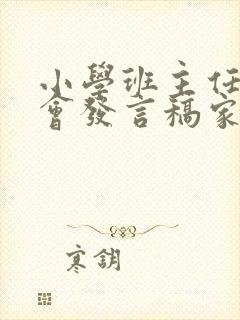 小學班主任
會發言稿家
寒鈅